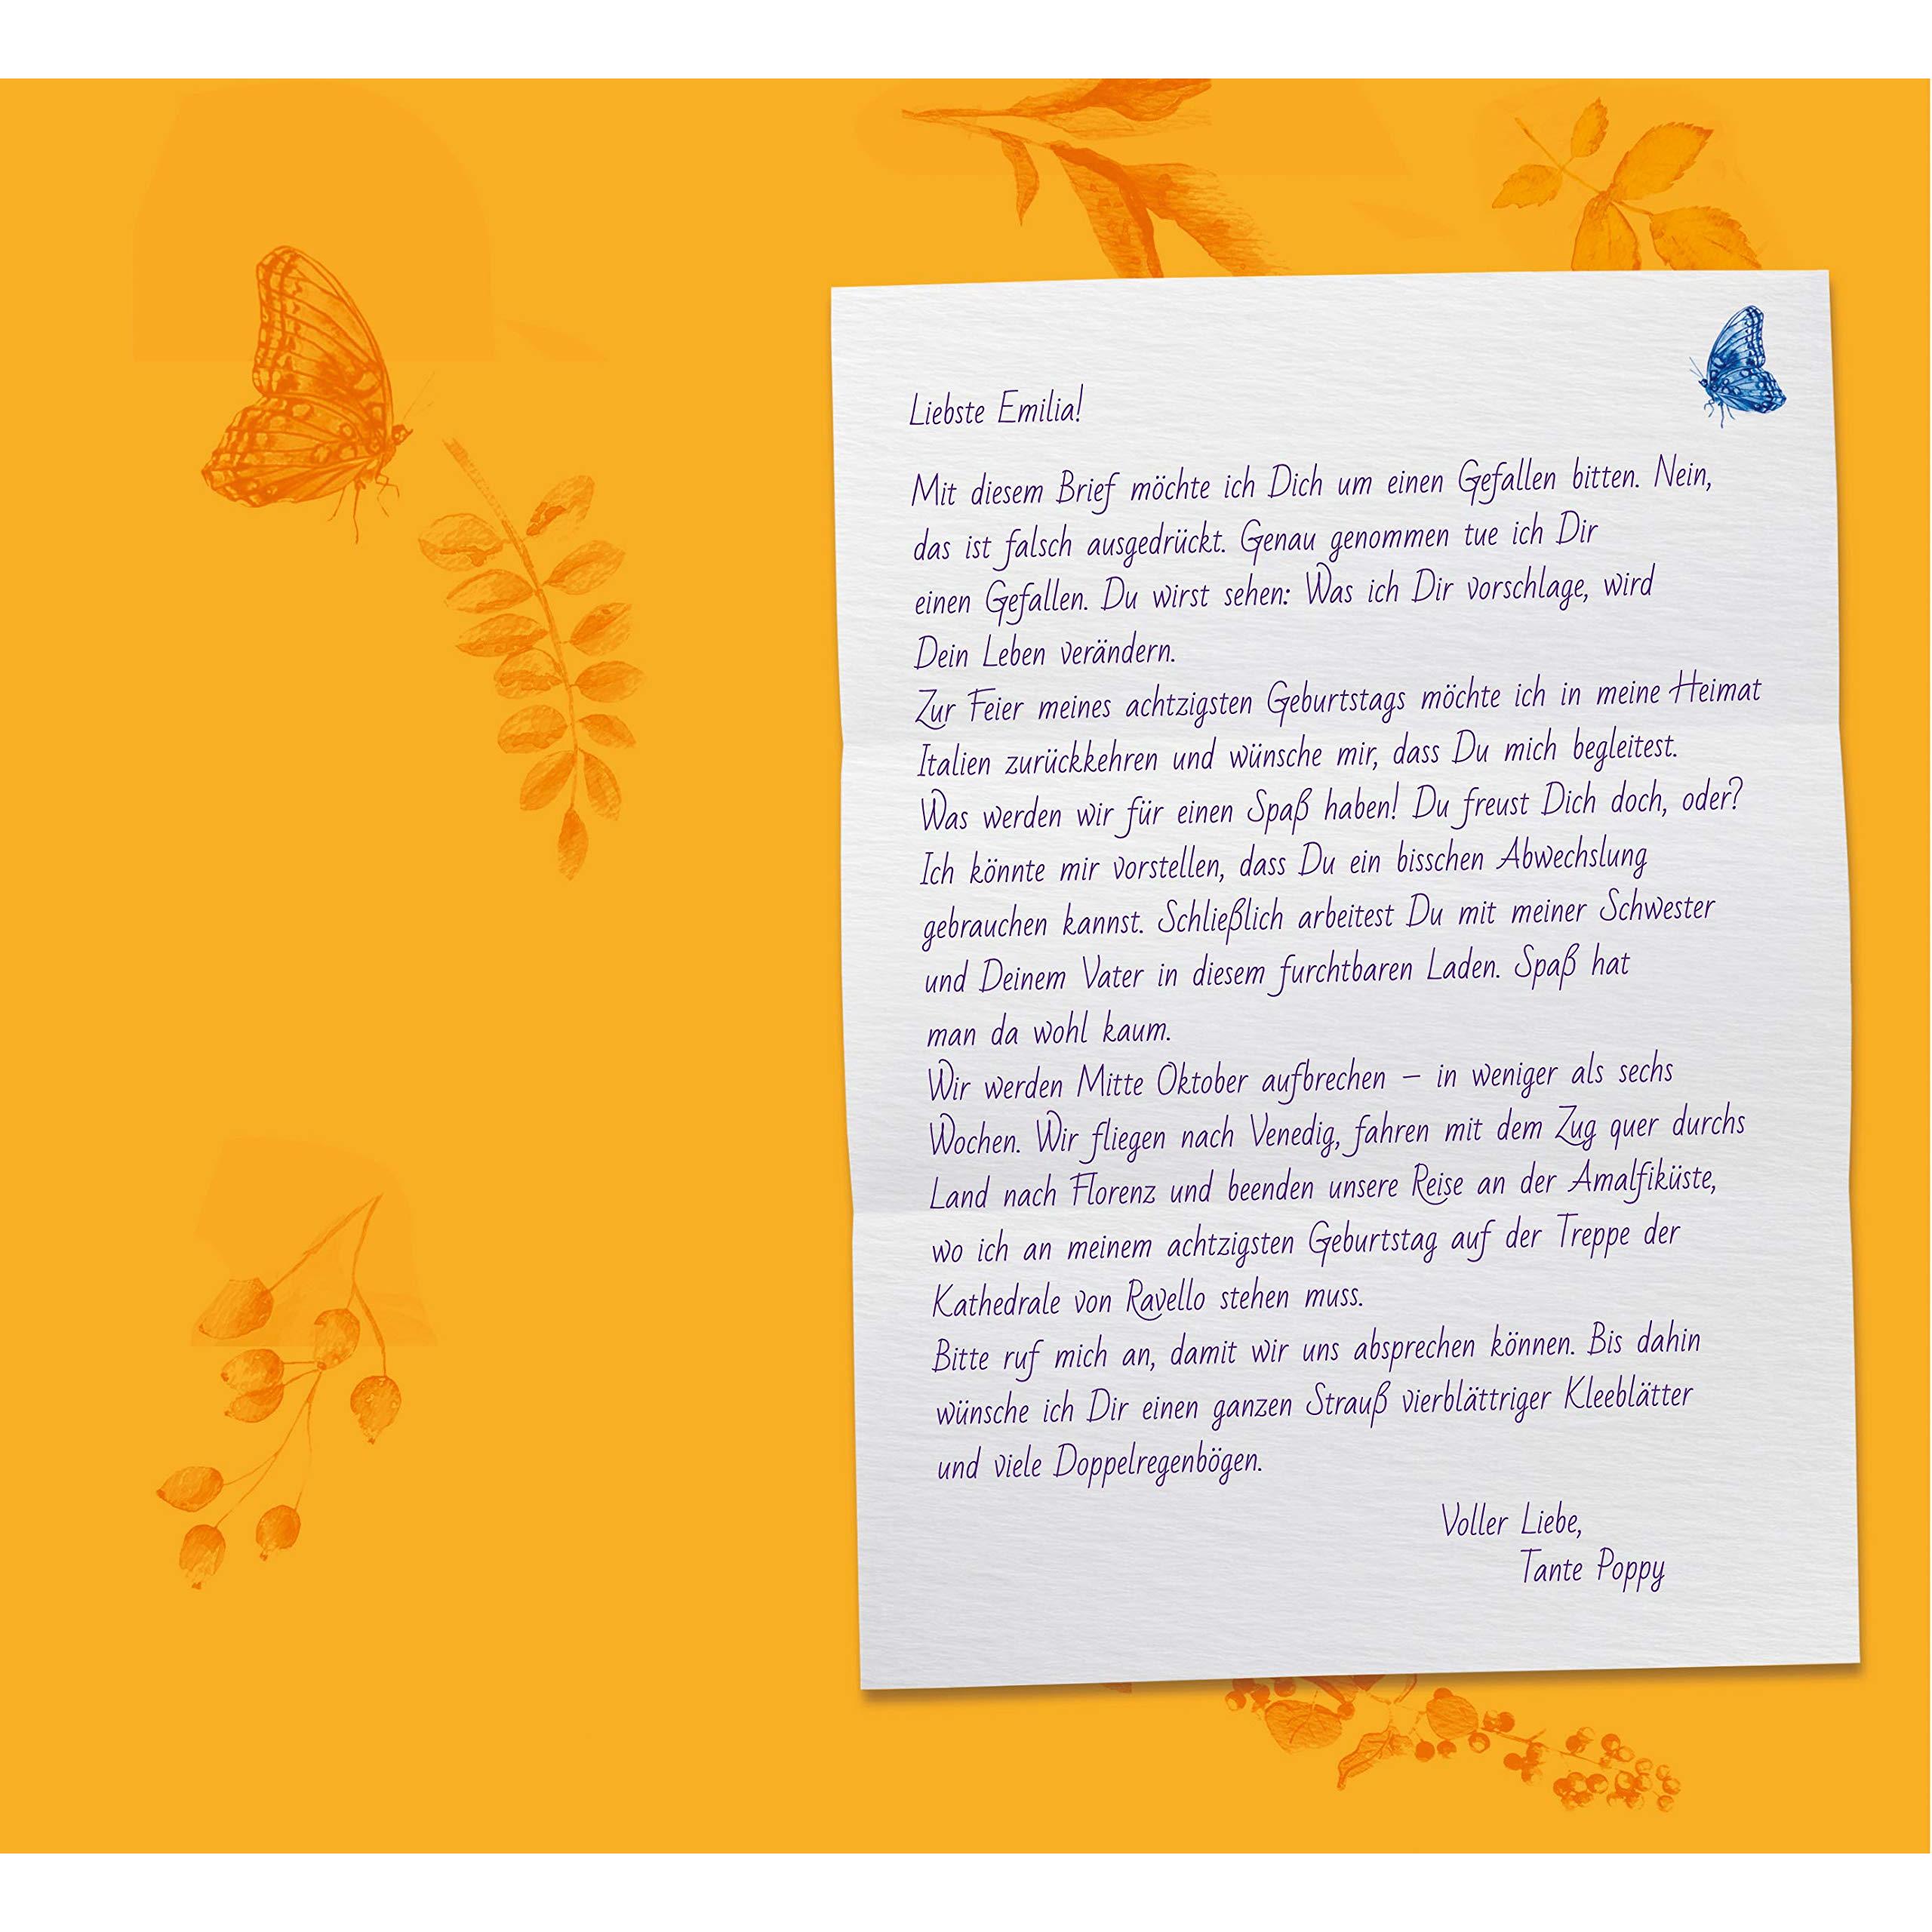 Liebste Emilia!
Mit diesem Brief möchte ich Dich um einen Gefallen bitten. Nein,
das ist falsch ausgedrückt. Genau genommen tue ich Dir
einen Gefallen. Du wirst sehen: Was ich Dir vorschlage, wird
Dein Leben verändern.
Zur Feier meines achtzigsten Geburtstags möchte ich in meine Heimat
Italien zurückkehren und wünsche mir, dass Du mich begleitest.
Was werden wir für einen Spaß haben! Du freust Dich doch, oder?
Ich könnte mir vorstellen, dass Du ein bisschen Abwechslung
gebrauchen kannst. Schließlich arbeitest Du mit meiner Schwester
und Deinem Vater in diesem furchtbaren Laden. Spaß hat
man da wohl kaum.
Wir werden Mitte Oktober aufbrechen – in weniger als sechs
Wochen. Wir fliegen nach Venedig, fahren mit dem Zug quer durchs
Land nach Florenz und beenden unsere Reise an der Amalfiküste,
wo ich an meinem achtzigsten Geburtstag auf der Treppe der
Kathedrale von Ravello stehen muss.
Bitte ruf mich an, damit wir uns absprechen können. Bis dahin
wünsche ich Dir einen ganzen Strauß vierblättriger Kleeblätter
und viele Doppelregenbögen.
Voller Liebe,
Tante Poppy